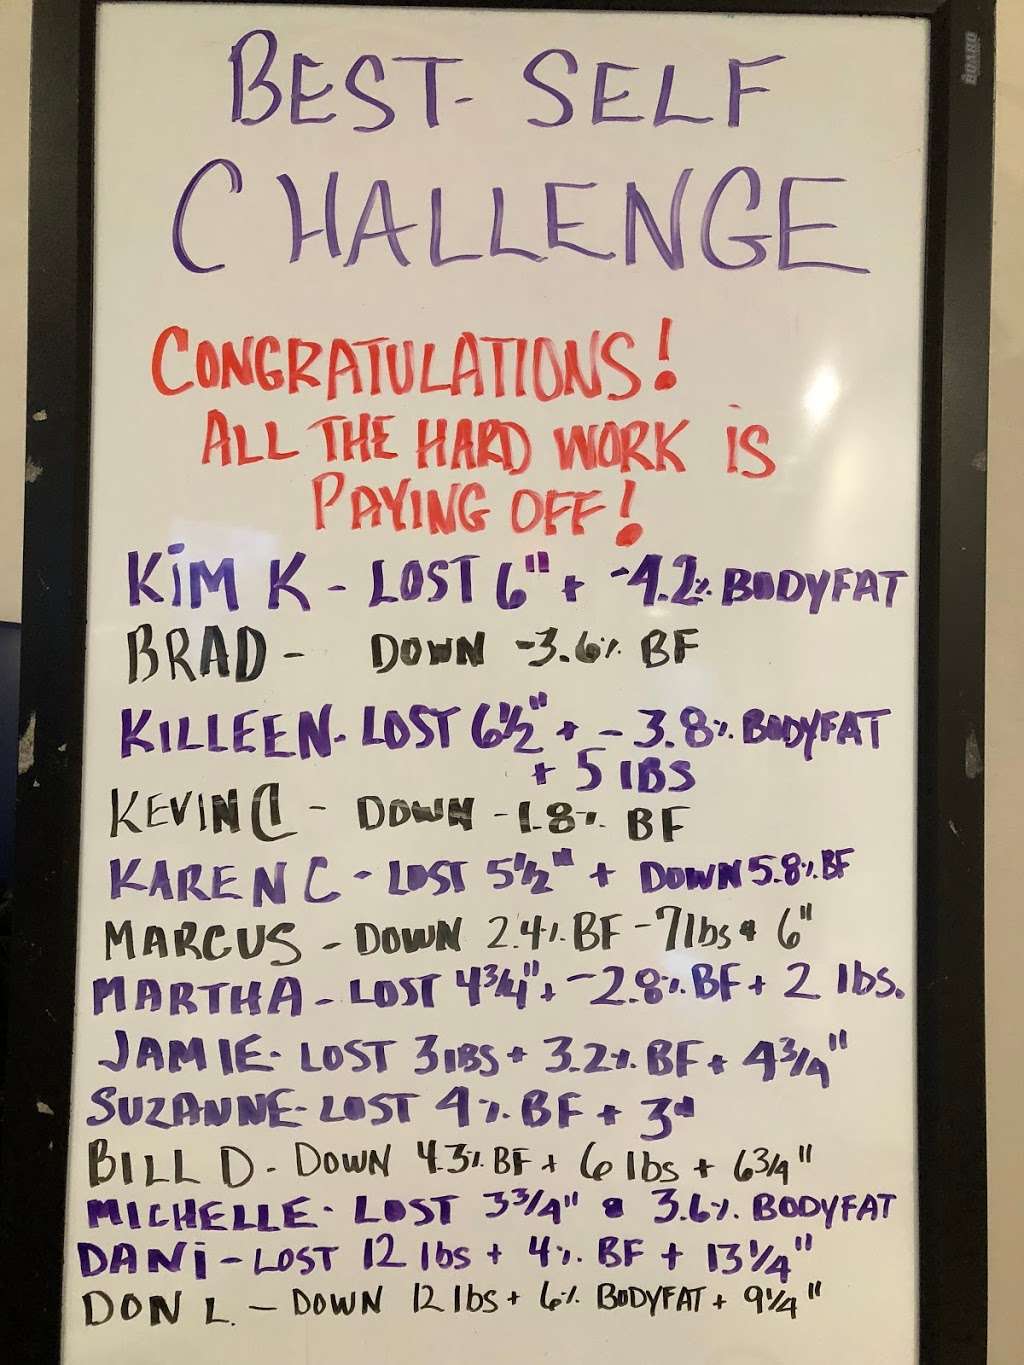 BOARD
BEST-SELF
CHALLENGE
CONGRATULATIONS!
ALL THE HARD WORK IS
PAYING OFF!
KiM K - LOST 6" + -4.2% BODYFAT
BRAD - DOWN -3.6% BF
KILLEEN - LOST 6½" + - 3.8% BODYFAT
+ 5 lBS
KEVIN C - DOWN -1.8% BF
KAREN C - LOST 5½" + DOWN 5.8% BF
MARCUS - DOWN 2.4% BF - 7lbs & 6"
MARTHA - LOST 4¾" + -2.8% BF + 2 lbs.
JAMIE - LOST 3lBS + 3.2% BF + 4¾"
SUZANNE - LOST 4% BF + 3"
BILL D - DOWN 4.3% BF + 6 lbs + 6¾"
MICHELLE - LOST 3¾" & 3.6% BODYFAT
DANi - LOST 12 lbs + 4% BF + 13¼"
DON L. - DOWN 12 lbs + 6% BODYFAT + 9¼"